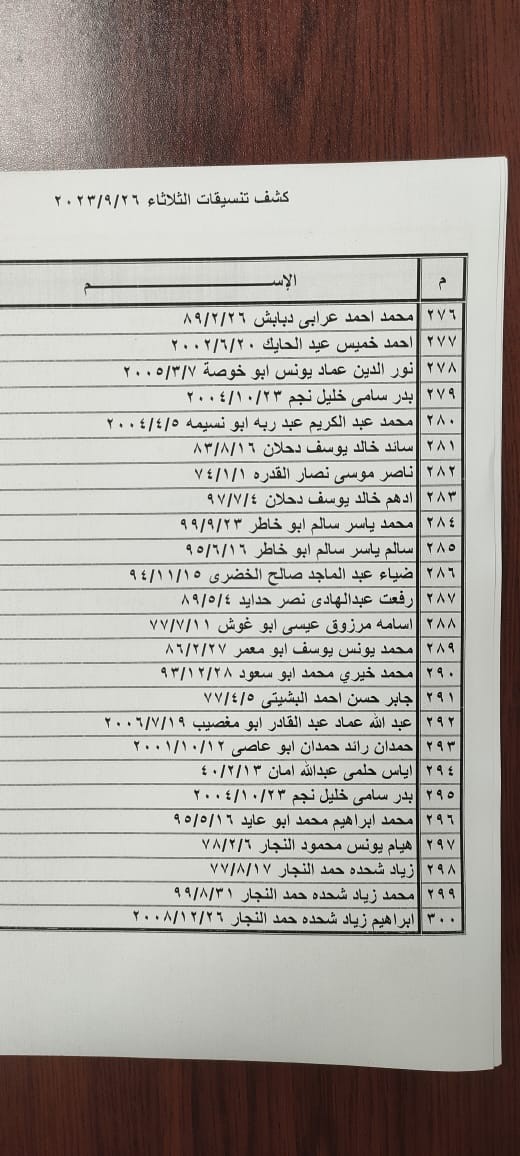 كشف تنسيقات الثلاثاء ٢٠٢٣/٩/٢٦
م الإســـــــــم
٢٧٦ محمد احمد عرابى دبابش ٨٩/٢/٢٦
٢٧٧ احمد خميس عيد الحايك ٢٠٠٢/٦/٢٠
٢٧٨ نور الدين عماد يونس ابو خوصة ٢٠٠٥/٣/٧
٢٧٩ بدر سامى خليل نجم ٢٠٠٤/١٠/٢٣
٢٨٠ محمد عبد الكريم عبد ربه ابو نسيمه ٢٠٠٤/٤/٥
٢٨١ سائد خالد يوسف دحلان ٨٣/٨/١٦
٢٨٢ ناصر موسى نصار القدره ٧٤/١/١
٢٨٣ ادهم خالد يوسف دحلان ٩٧/٧/٤
٢٨٤ محمد ياسر سالم ابو خاطر ٩٩/٩/٢٣
٢٨٥ سالم ياسر سالم ابو خاطر ٩٥/٦/١٦
٢٨٦ ضياء عبد الماجد صالح الخضرى ٩٤/١١/١٥
٢٨٧ رفعت عبدالهادى نصر حدايد ٨٩/٥/٤
٢٨٨ اسامه مرزوق عيسى ابو غوش ٧٧/٧/١١
٢٨٩ محمد يونس يوسف ابو معمر ٨٦/٢/٢٧
٢٩٠ محمد خيري محمد ابو سعود ٩٣/١٢/٢٨
٢٩١ جابر حسن احمد البشيتى ٧٧/٤/٥
٢٩٢ عبد الله عماد عبد القادر ابو مغصيب ٢٠٠٦/٧/١٩
٢٩٣ حمدان رائد حمدان ابو عاصى ٢٠٠١/١٠/١٢
٢٩٤ اياس حلمى عبدالله امان ٤٠/٢/١٣
٢٩٥ بدر سامى خليل نجم ٢٠٠٤/١٠/٢٣
٢٩٦ محمد ابراهيم محمد ابو عايد ٩٥/٥/١٦
٢٩٧ هيام يونس محمود النجار ٧٨/٢/٦
٢٩٨ زياد شحده حمد النجار ٧٧/٨/١٧
٢٩٩ محمد زياد شحده حمد النجار ٩٩/٨/٣١
٣٠٠ ابراهيم زياد شحده حمد النجار ٢٠٠٨/١٢/٢٦